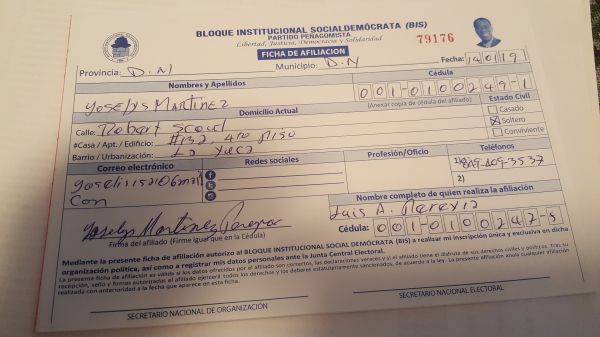 BLOQUE INSTITUCIONAL SOCIALDEMÓCRATA (BIS)
PARTIDO PEÑAGOMISTA
Libertad, Justicia, Democracia y Solidaridad
79176
FICHA DE AFILIACION
Provincia: D.N Municipio: D.N Fecha: 14/01/19
Nombres y Apellidos Cédula
Yoselys Martinez 001-0100249-1
(Anexar copia de cédula del afiliado)
Domicilio Actual Estado Civil
Calle: Robert Scout Casado
#Casa / Apt. / Edificio: #132 4to Piso Soltero
Barrio / Urbanización: La Yuca Conviviente
Correo electrónico Redes sociales Profesión/Oficio Teléfonos
1) 849-409-3537
2)
Con
Nombre completo de quien realiza la afiliación
Luis A. Pereyra
Yoselys Martinez Pereyra
Firma del afiliado (Firme igual que en la Cédula) Cédula: 001-0100247-5
Mediante la presente ficha de afiliación autorizo al BLOQUE INSTITUCIONAL SOCIAL DEMÓCRATA (BIS) a realizar mi inscripción única y exclusiva en dicha
organización política, así como a registrar mis datos personales ante la Junta Central Electoral.
La presente ficha de afiliación es válida si los datos ofrecidos por el afiliado son correctos, las declaraciones veraces y si el afiliado tiene el disfrute de sus derechos civiles y políticos. Tras su
recepción, sello y firmas autorizadas el afiliado ejercerá todos los derechos y los deberes estatutariamente sancionados, de acuerdo a la ley. La presente afiliación anula cualquier afiliación
realizada con anterioridad a la fecha que aparece en esta ficha.
SECRETARIO NACIONAL DE ORGANIZACIÓN SECRETARIO NACIONAL ELECTORAL